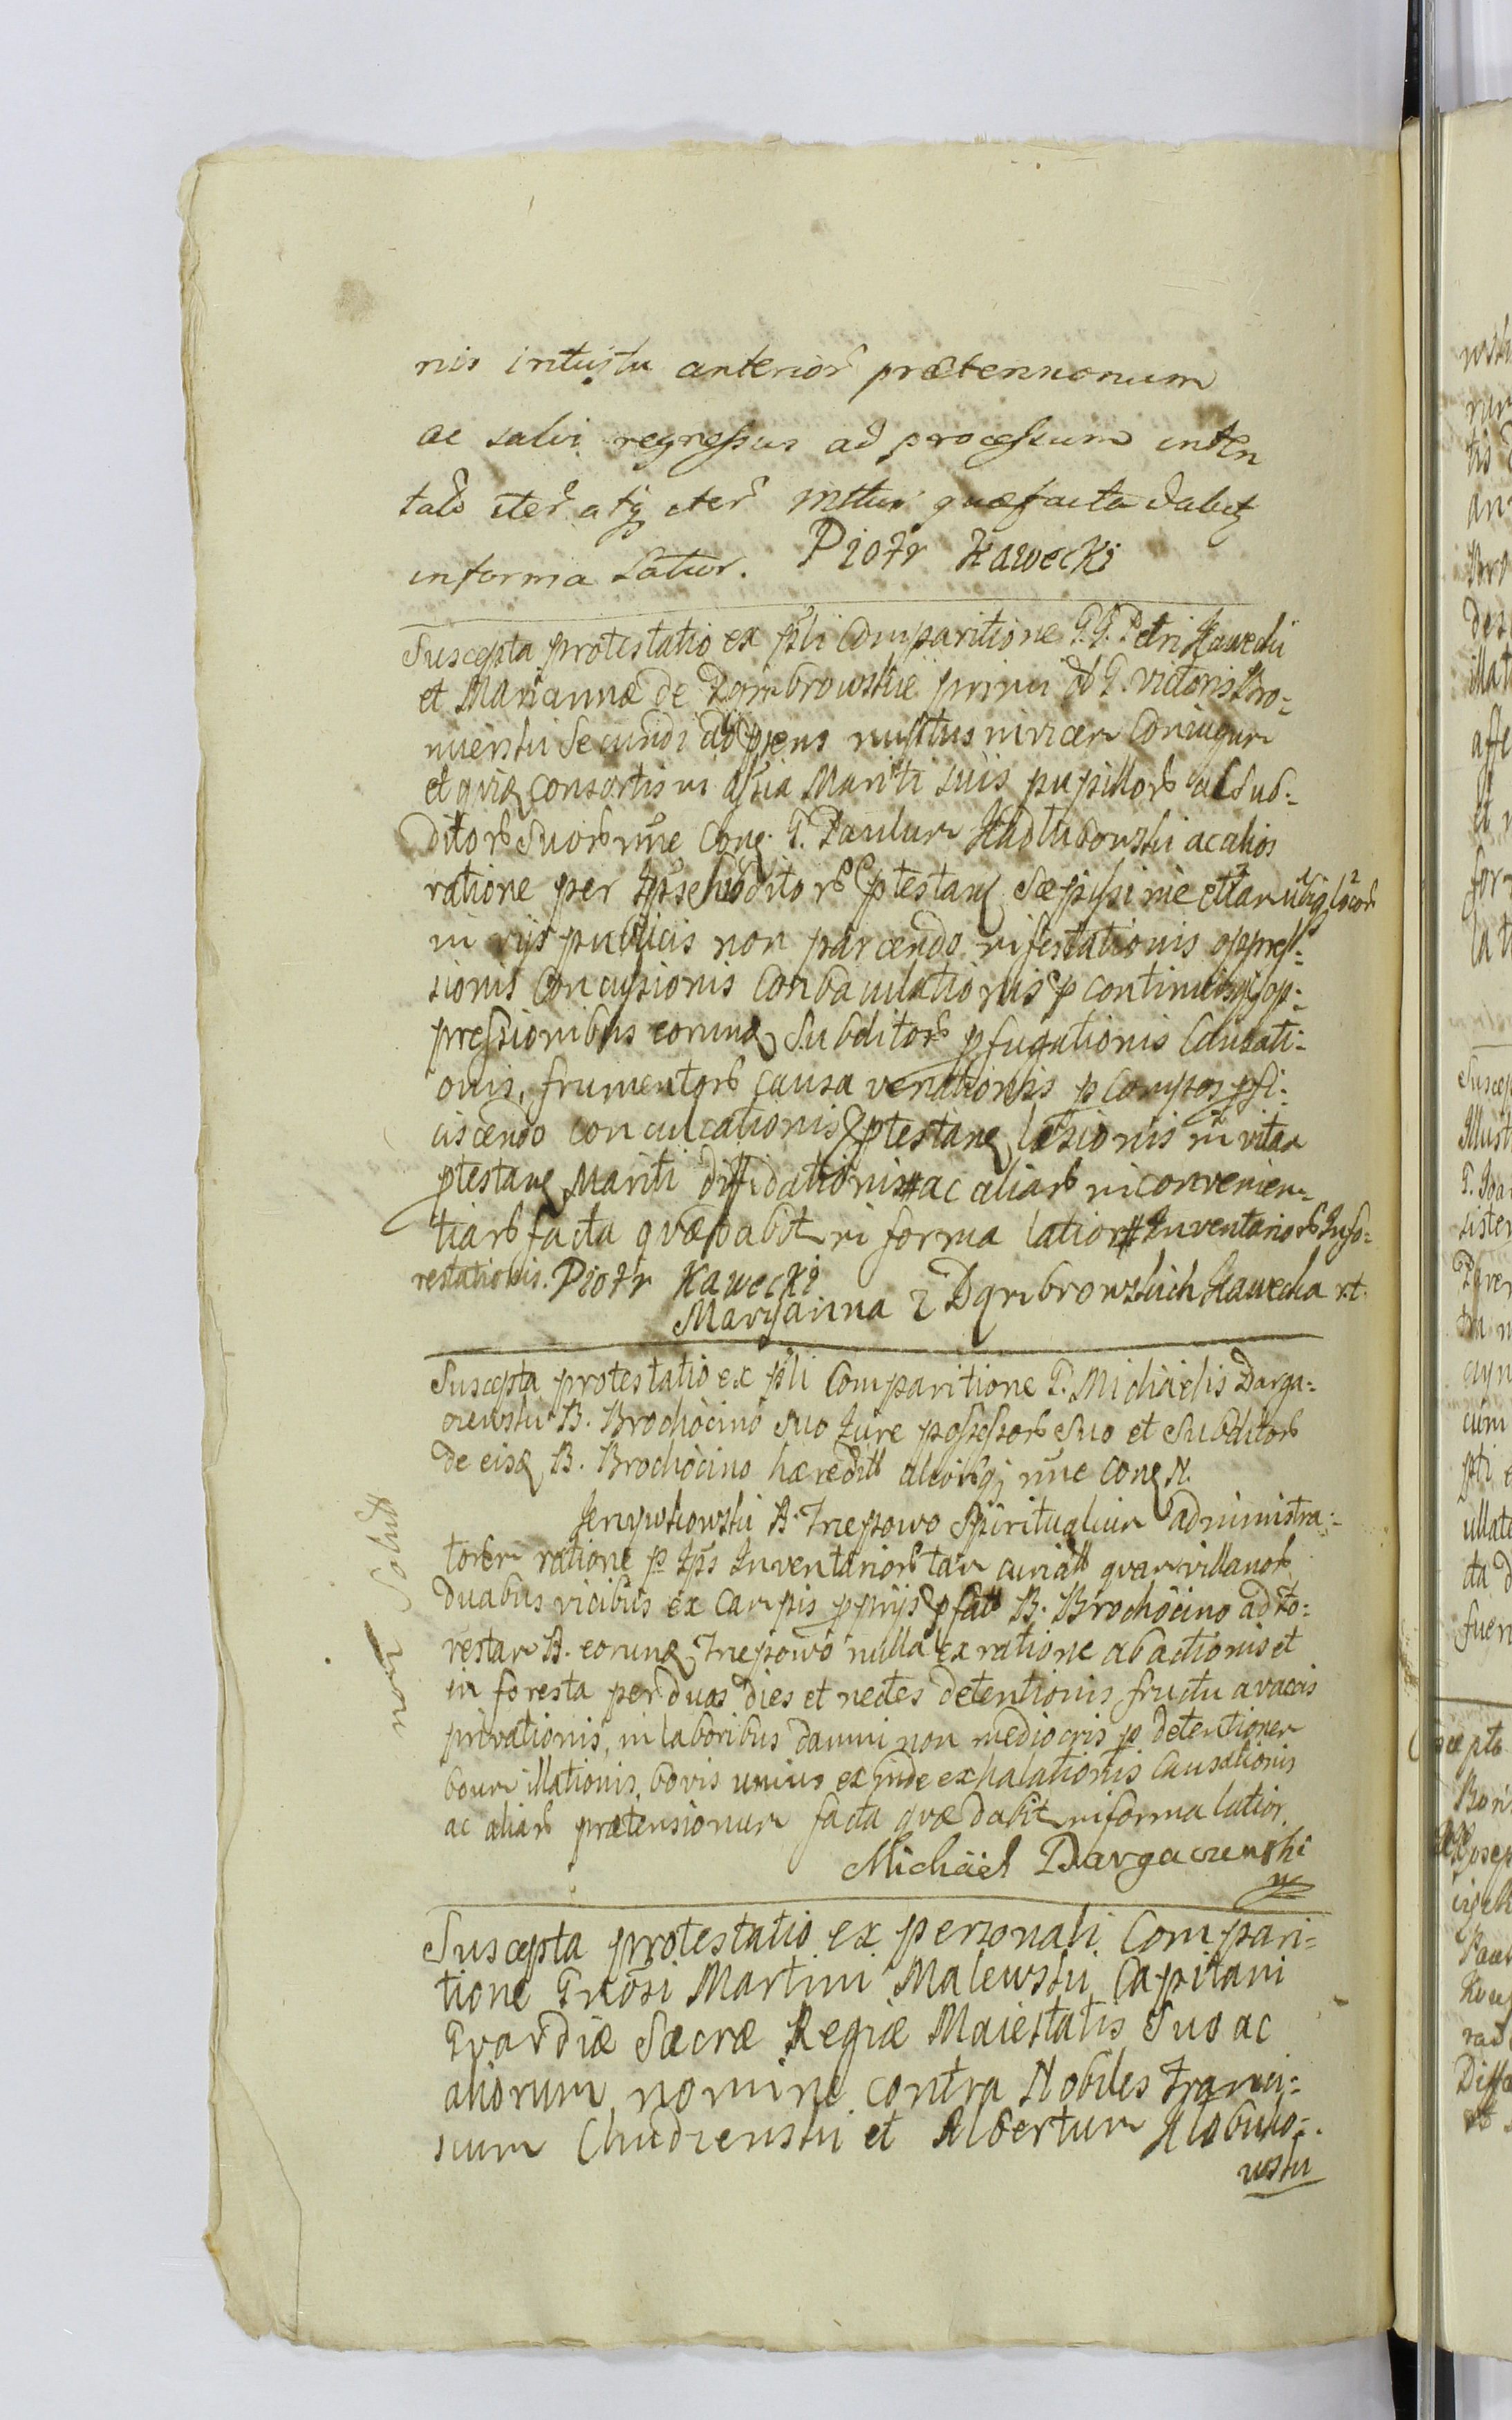 nis intuitu anterior prætensionum
ac salvi regressus ad processum inten
tatd iter atq iter mttur quæ facta dabit
in forma latior. Piotr Kawecki
Suscepta protestatio ex psli Comparitione G.G. Petri Kawecki
et Mariannæ de Dąmbrowskie primi ab G. Victoris Bro-
nienski Secundi ab prens nuptus invicem Coniugum
et quidq consortis in assia Mariti suis pupillorb ac Sub-
ditorb Suorb nne Conq. G. Paulum Kadłubowski ac alios
ratione per Ips subditorb ptestanq Sæpissime etiam ubiq locorb
in vijs publicis non parcendo infestationis oppres-
sionis Concussionis Conbaculationis p continuasq op-
pressionibus eorundq Subditorb pfugationis Causati-
onis, frumentorb causa venationis p Campos pfi-
ciscendo conculcationis ptestanq læsionis in vitam
ptestanq Mariti diffidationis # ac aliarb inconvenien-
tiarb facta quæ dabit in forma latior # Inventariorb Info-
restationis. Piotr Kawecki
Maryanna z Dąmbrowskich Kawecka xt.
Suscepta protestatio ex psli Comparitione G. Michaelis Darga-
czewski B. Brochocino Suo Iure possessorb Suo et Subditorb
de eisdq B. Brochocino hæreditt aliorbqj nne Conq N.
Jerzykowski B. Trzepowo Spiritualium administra-
torem ratione p Ips Inventariorb tam curiatt quam villanorb
duabus vicibus ex Campis pprijs pfatt B. Brochocino ad fo-
restam B. eorundq Trzepowo nulla ex ratione abactionis et
in foresta per duas dies et noctes detentionis fructu a vaccis
privationis, in laboribus damni non mediocris p detentionem
boum illationis, bovis unius exinde exhalationis Causationis
ac aliarb prætensionum facta quæ dabit in forma latior.
Michael Dargaczewski
mp
non Solut
Suscepta protestatio ex personali Compari-
tione Gnosi Martini Malewski Capitani
Gvardiæ Sacræ Regiæ Maiestatis Suo ac
aliorum nomine contra Nobiles Franci-
scum Chudzenski et Albertum Kłobuko-
wski